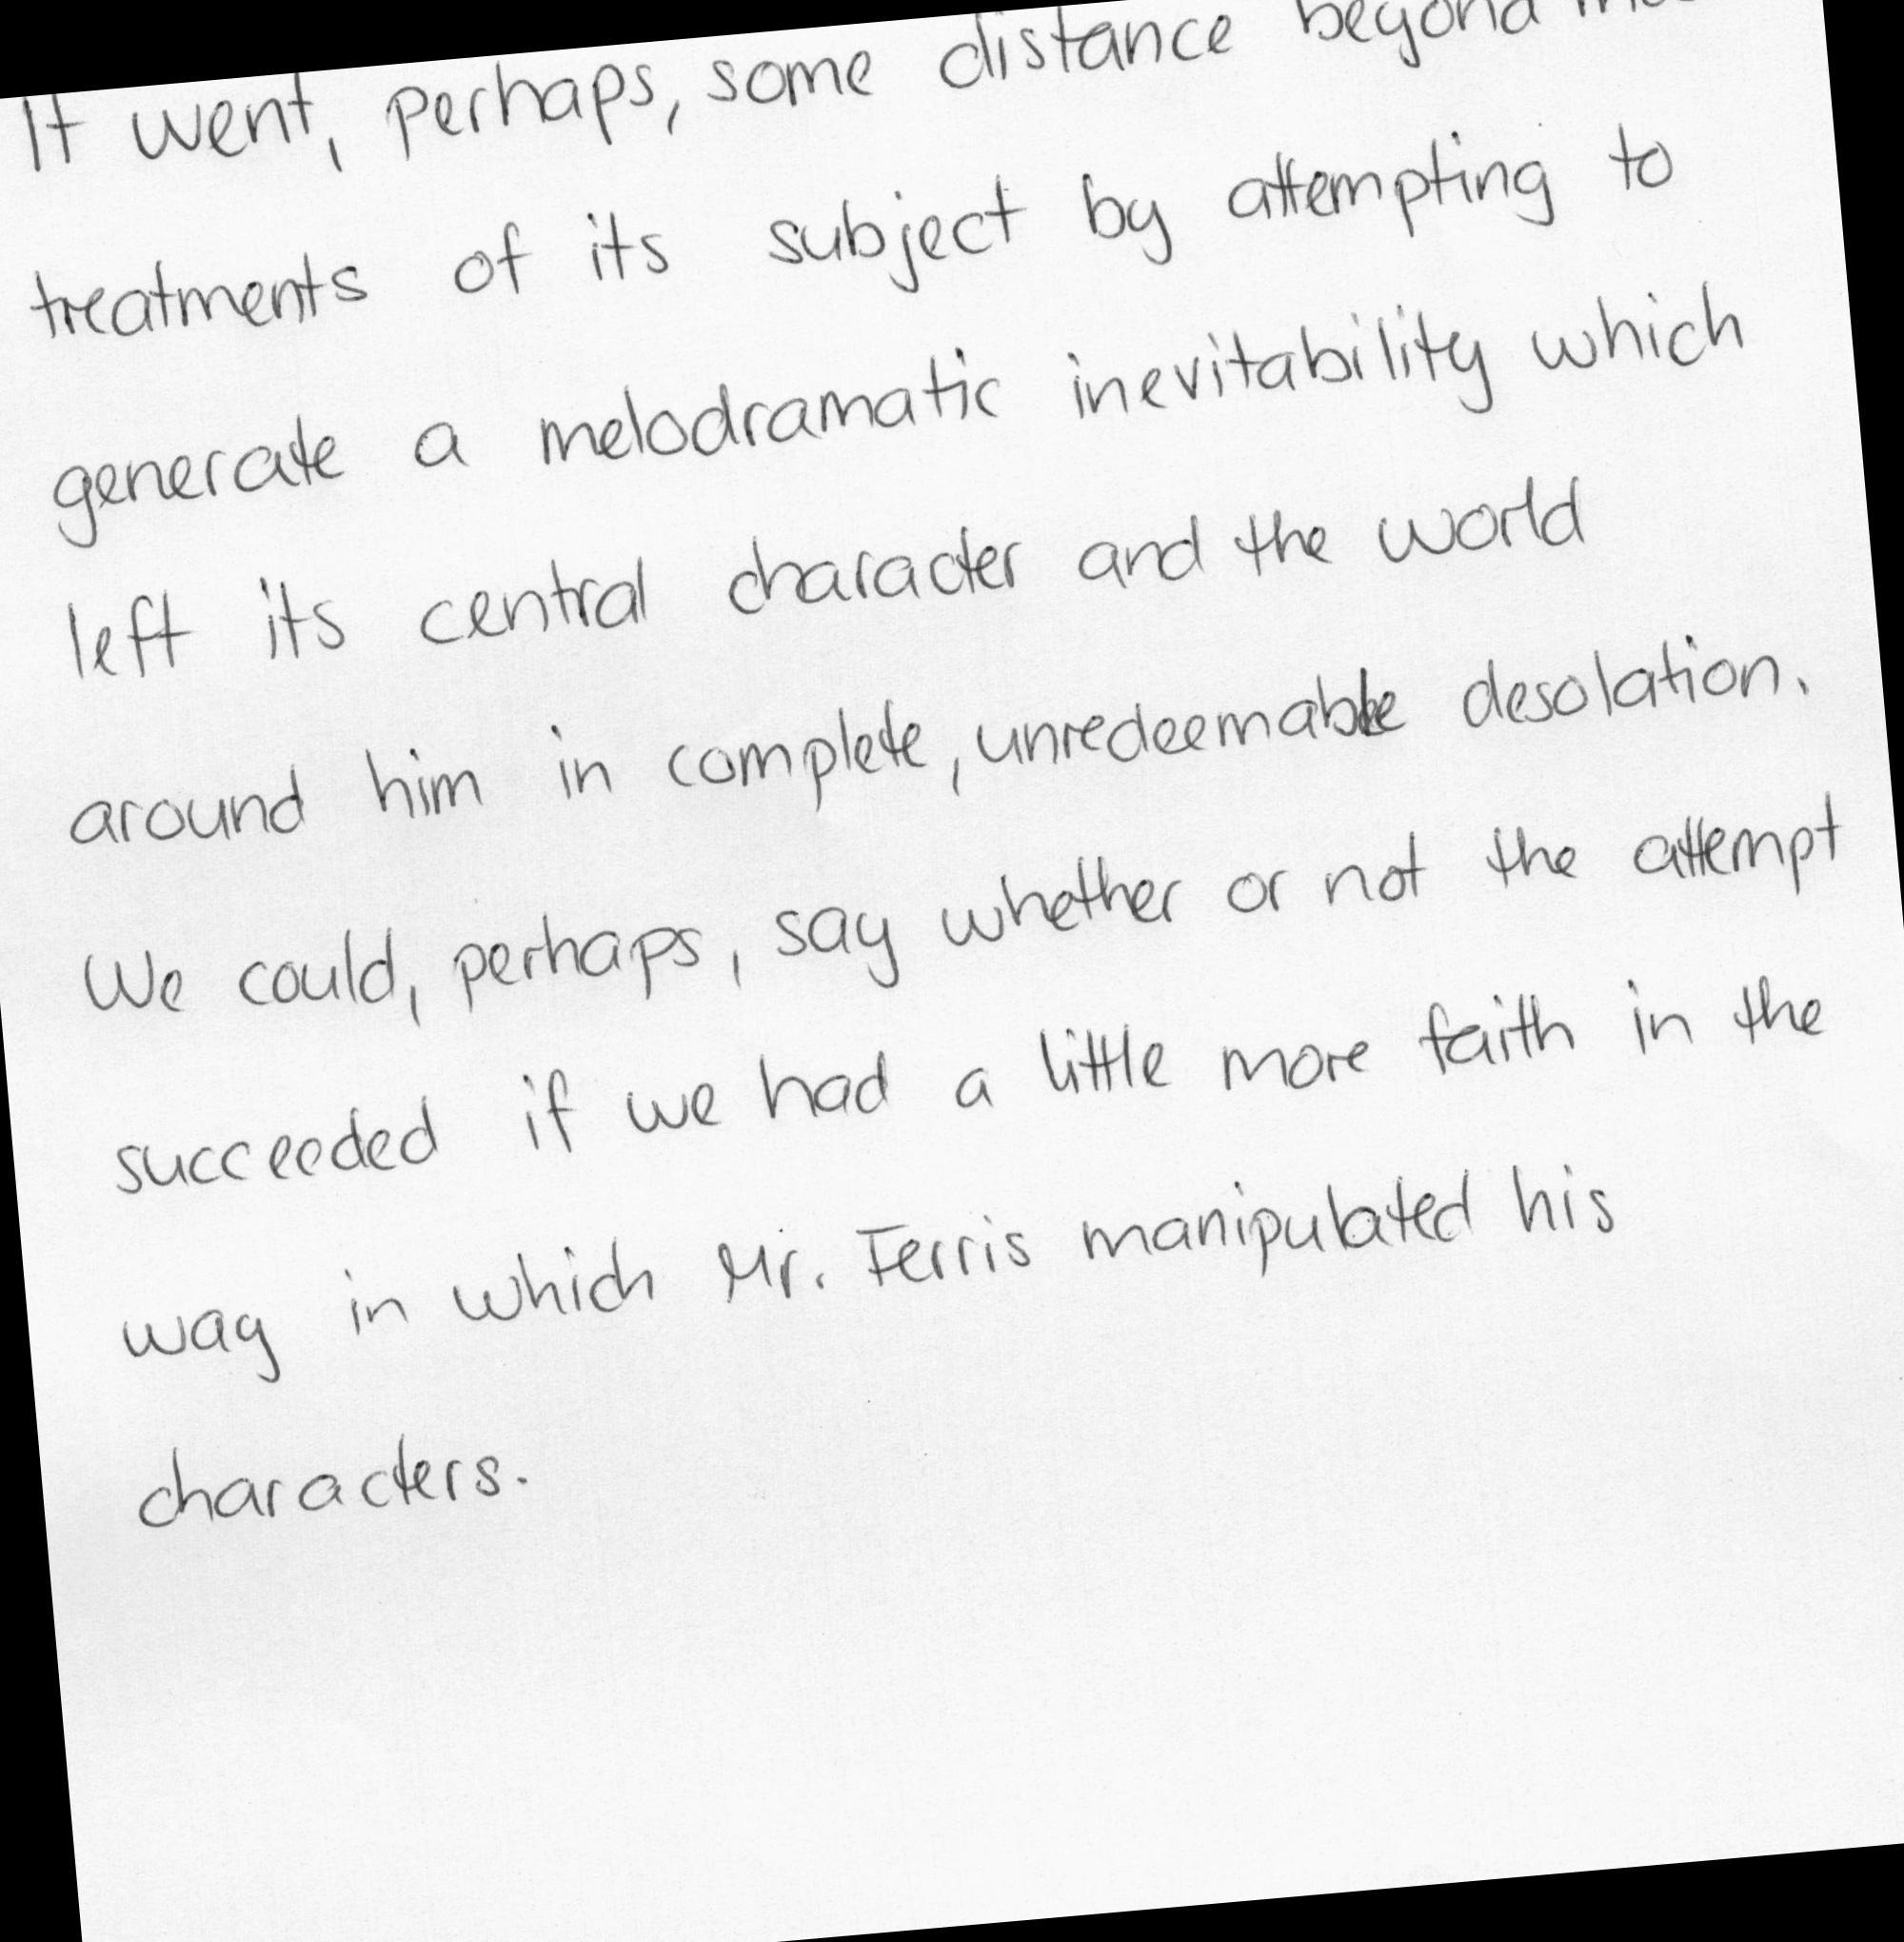 It went, perhaps, some distance beyond
treatments of its subject by attempting to
generate a melodramatic inevitability which
left its central character and the world
around him in complete, unredeemable desolation.
We could, perhaps, say whether or not the attempt
succeeded if we had a little more faith in the
way in which Mr. Ferris manipulated his
characters.